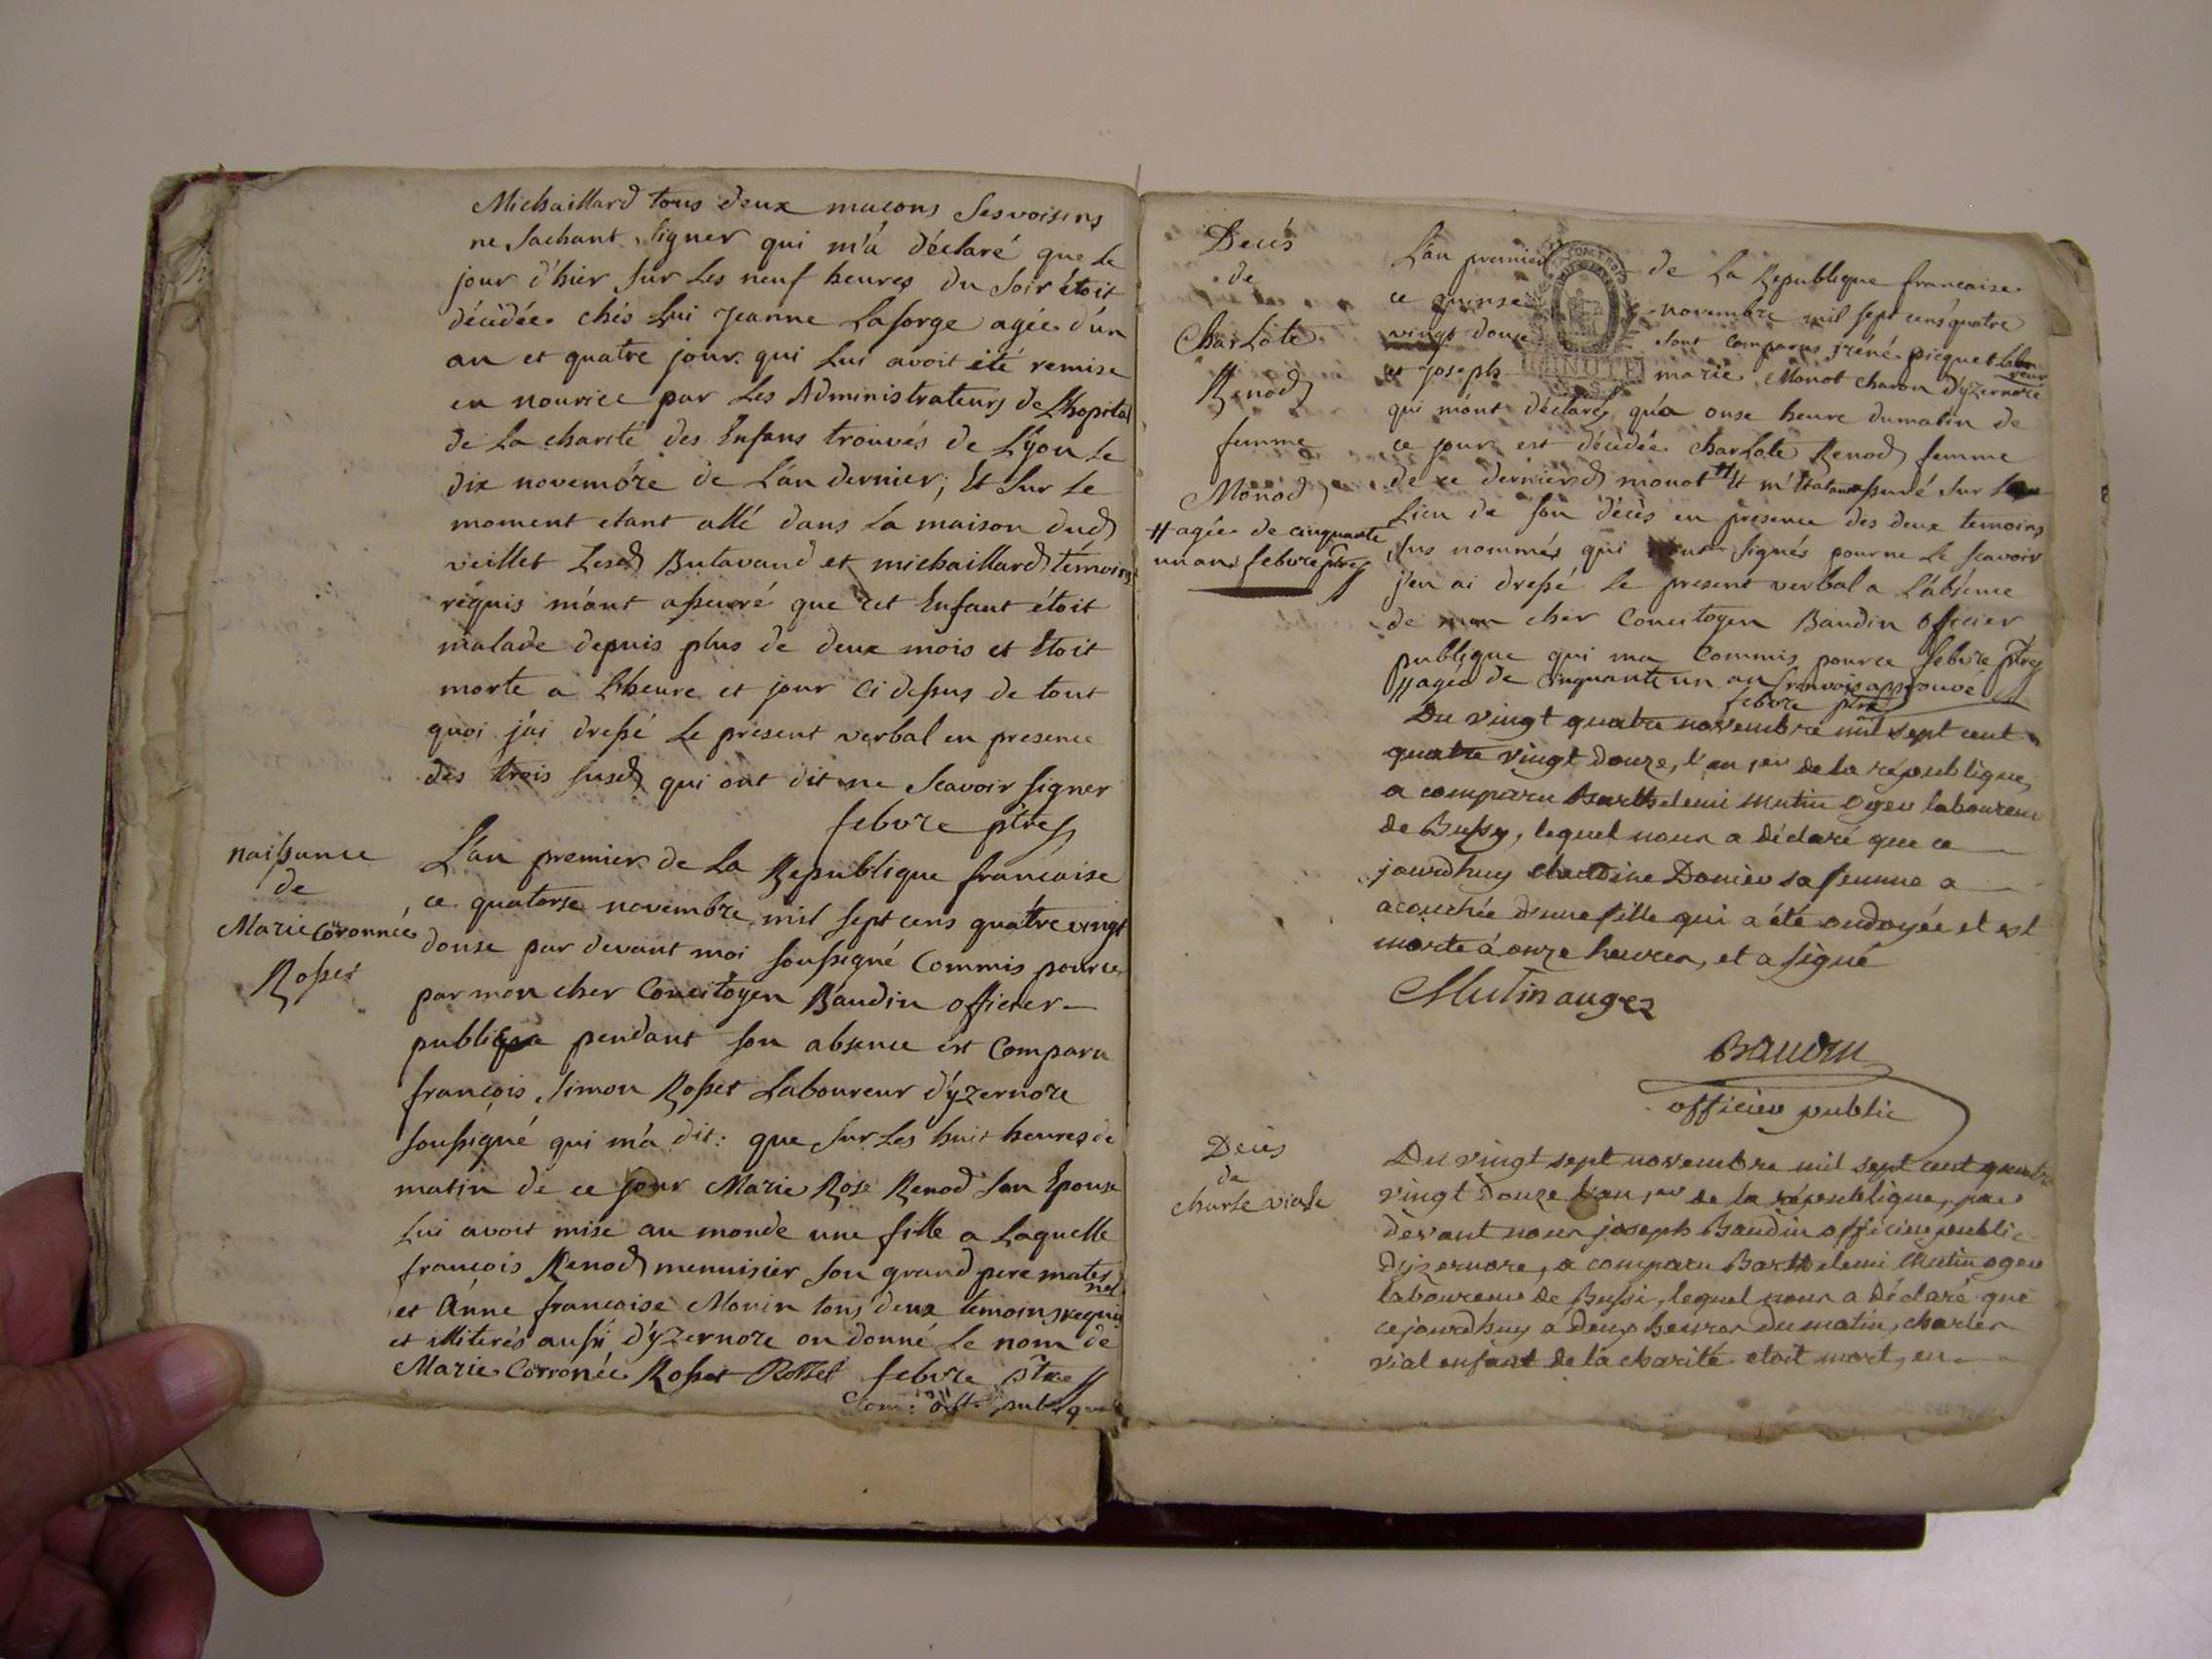 Michaillard tous deux macons ses voisins
ne sachant signer qui m'a déclaré que le
jour d'hier sur les neuf heures du soir étoit
décédée chés lui Jeanne Laforge agée d'un
an et quatre jour qui lui avoit été remise
en nourice par les Administrateurs de L'hopital
de La charité des Enfans trouvés de Lyon le
dix novembre de L'an dernier, Et sur le
moment etant allé dans la maison dud
veillet Lesd Butavand et michaillard témoins
requis m'ont assuré que cet Enfant étoit
malade depuis plus de deux mois et étoit
morte a L'heure et jour ci dessus de tout
quoi j'ai dressé le présent verbal en presence
des trois susd qui ont dit ne scavoir signer
febvre ptre
naissance
de
Marie Coronnée
Rosset
L'an premier de La Republique francaise
ce quatorse novembre mil sept cens quatre vingt
douse par devant moi soussigné Commis pour ce
par mon cher Concitoyen Baudin officier
publique pendant son absence est Comparu
françois Simon Rosset Laboureur d'yzernore
soussigné qui m'a dit: que sur les huit heures de
matin de ce jour Marie Rose Renod son Epouse
lui avoit mise au monde une fille a Laquelle
françois Renod menuisier son grand pere mater
nel
et Anne francoise Monin tous deux témoins requis
et illiterés aussi d'yzernore on donné le nom de
Marie Corronée Rosset Rosset febvre ptre
Com: off. publique
Décés
de
Charlote
Renod
femme
Monod
# agée de cinquante
un ans febvre ptre
L'an premier de La Republique francaise
ce quinse novembre mil sept cens quatre
vingt douse sont comparus iréné picquet labou
reur
et joseph marie Monot charon d'yzernore
MINUTE
qui m'ont déclaré qu'a onse heure du matin de
ce jour est décédée charlote Renod femme
de ce dernier d monot # Et m'étant assuré sur le
Lieu de son décès en presence des deux temoins
sus nommés qui signés pour ne le scavoir
j'en ai dressé le present verbal a L'absence
de mon cher Concitoyen Baudin officier
publique qui ma Commis pour ce febvre ptre
# agée de cinquante un an renvois approuvé
febvre ptre
Du vingt quatre novembre mil sept cent
quatre vingt douze, l'an 1er de la république,
a comparu Barthelemi Mutin Oger laboureur
de Bussy, lequel nous a déclaré que ce
jourdhuy Donier sa femme a
acouchée d'une fille qui a été ondoyée et est
morte à onze heures, et a signé
Mutin auger
Baudin
officier public
Décés
de
charle viale
Du vingt sept novembre mil sept cent quatre
vingt douze l'an 1er de la république, par
devant nous joseph Baudin officier public
Dyzernore, a comparu Barthelemi Mutin oger
laboureur de Bussi, lequel nous a déclaré que
cejourdhuy à deux heures du matin, charles
vial enfant de la charité etoit mort, en